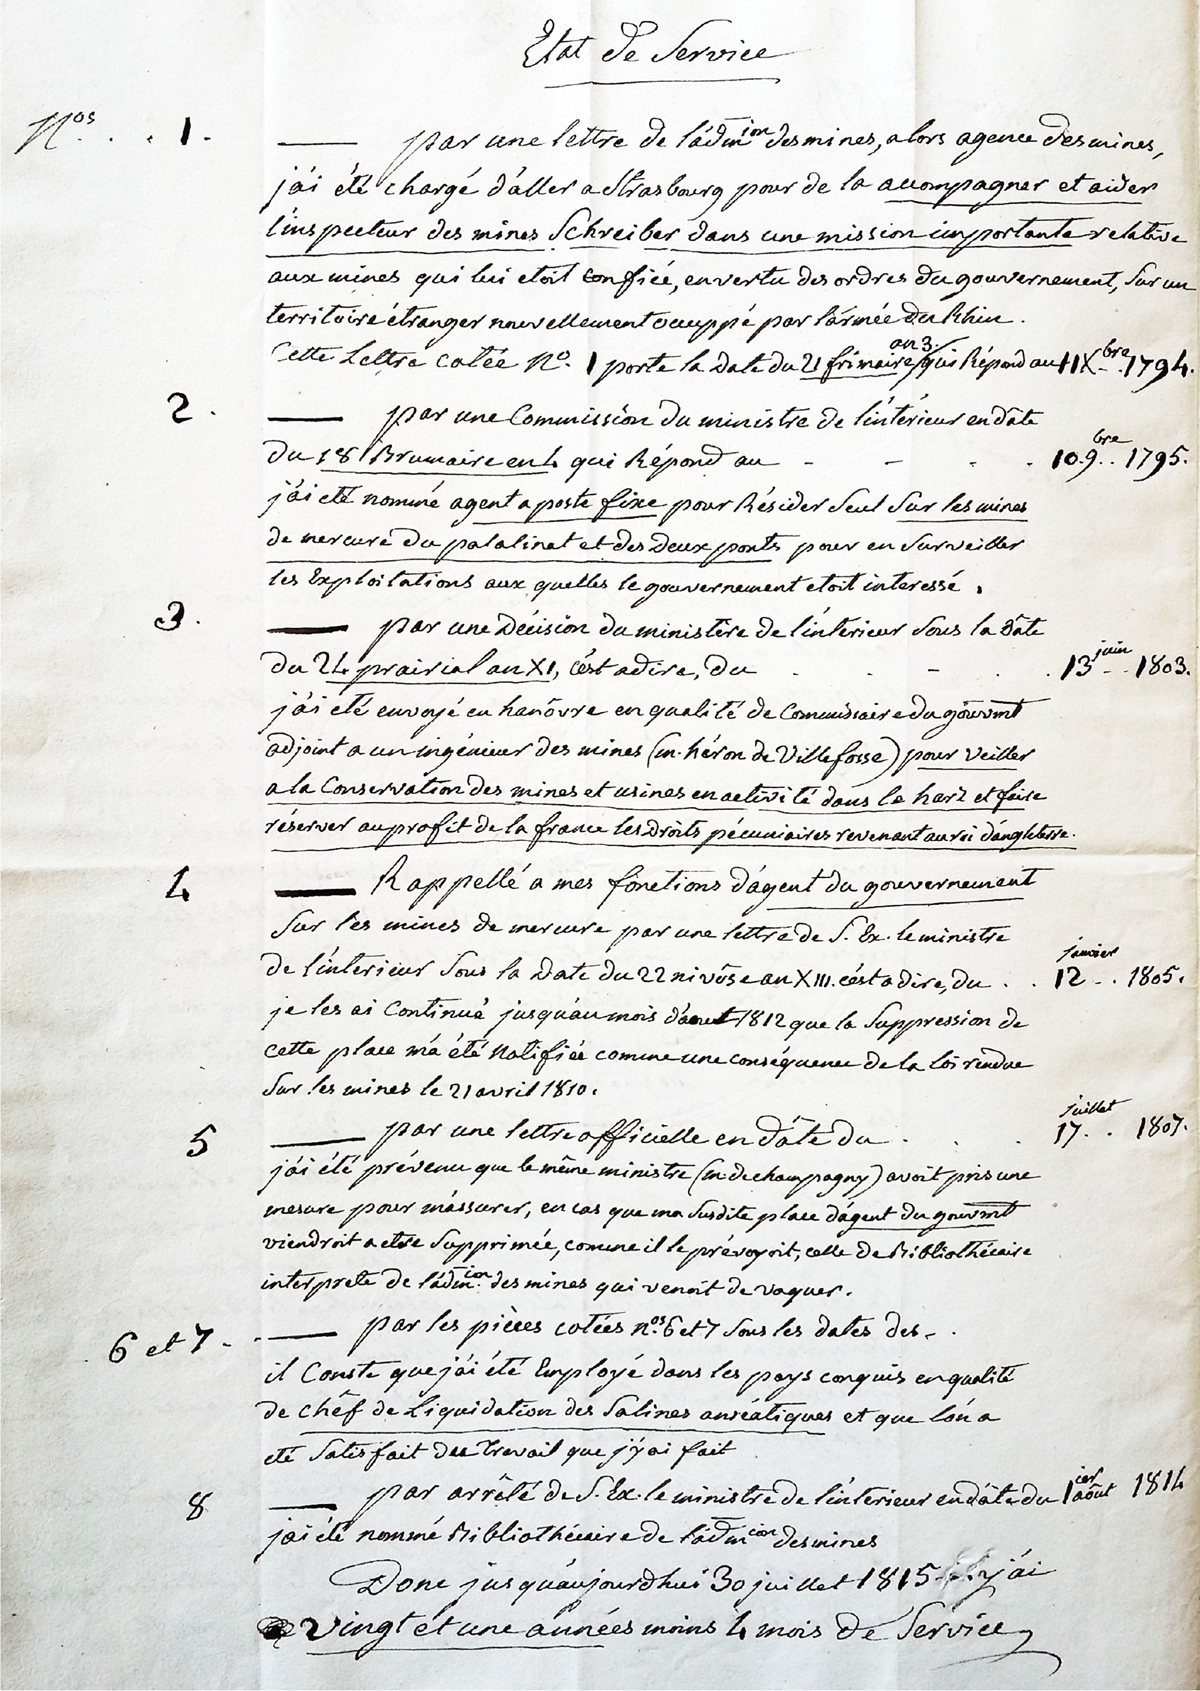 Etat de Service
Nos. . . 1. — par une lettre de l'adm.ion des mines, alors agence des mines,
j'ai été chargé d'aller a Strasbourg pour de la acompagner et aider
l'inspecteur des mines Schreiber dans une mission importante relative
aux mines qui lui etoit confiée, en vertu des ordres du gouvernement, sur un
territoire étranger nouvellement occuppé par l'armée du Rhin.
Cette Lettre cotée N.o 1 porte la date du 21 frimaire an 3/ qui Répond au 11 Xbre 1794.
2. — par une Commission du ministre de l'intérieur en date
du 18 Brumaire en 4 qui Répond au - - - . 10. 9.bre 1795.
j'ai été nommé agent a poste fixe pour Résider Seul Sur les mines
de mercure du palatinat et des Deux ponts pour en Surveiller
les Exploitations aux quelles le gouvernement etoit interessé.
3. — par une Décision du ministère de l'intérieur Sous la Date
du 24 prairial an XI, c'est a dire, du . - . 13 juin 1803.
j'ai été envoyé en hanôvre en qualité de Commissaire du gouvmt
adjoint a un ingénieur des mines (m. héron de Villefosse) pour veiller
a la Conservation des mines et usines en activité dans le harz et faire
réserver au profit de la france les Droits pécuniaires revenant au roi d'angleterre.
4 — Rappellé a mes fonctions d'agent du gouvernement
Sur les mines de mercure par une lettre de S. Ex. le ministre
de l'intérieur Sous la Date du 22 nivôse an XIII. c'est a dire, du . . 12 janvier 1805.
je les ai Continué jusqu'au mois d'aout 1812 que la Suppression de
cette place m'a été Notifiée comme une conséquence de la loi rendue
Sur les mines le 21 avril 1810.
5 — par une lettre officielle en dâte du . . . 17 juillet 1807.
j'ai été prévenu que le même ministre (m. de champagny) avoit pris une
mesure pour m'assurer, en cas que ma Susdite place d'agent du gouvmt
viendroit a etre Supprimée, comme il le prévoyoit, celle de Bibliothécaire
interprete de l'adm.ion des mines qui venoit de vaquer.
6 et 7. — par les pièces cotées nos. 6 et 7 Sous les dates des . .
il Conste que j'ai été Employé dans les pays conquis en qualité
de chêf de Liquidation des Salines anséatiques et que l'on a
été Satisfait du travail que j'y ai fait
8 — par arrêté de S. Ex. le ministre de l'intérieur en dâte du 1ier août 1814
j'ai été nommé Bibliothécaire de l'adm.ion des mines
Donc jusqu'aujourdhui 30 juillet 1815 j'ai
Vingt et une années moins 4 mois de Service